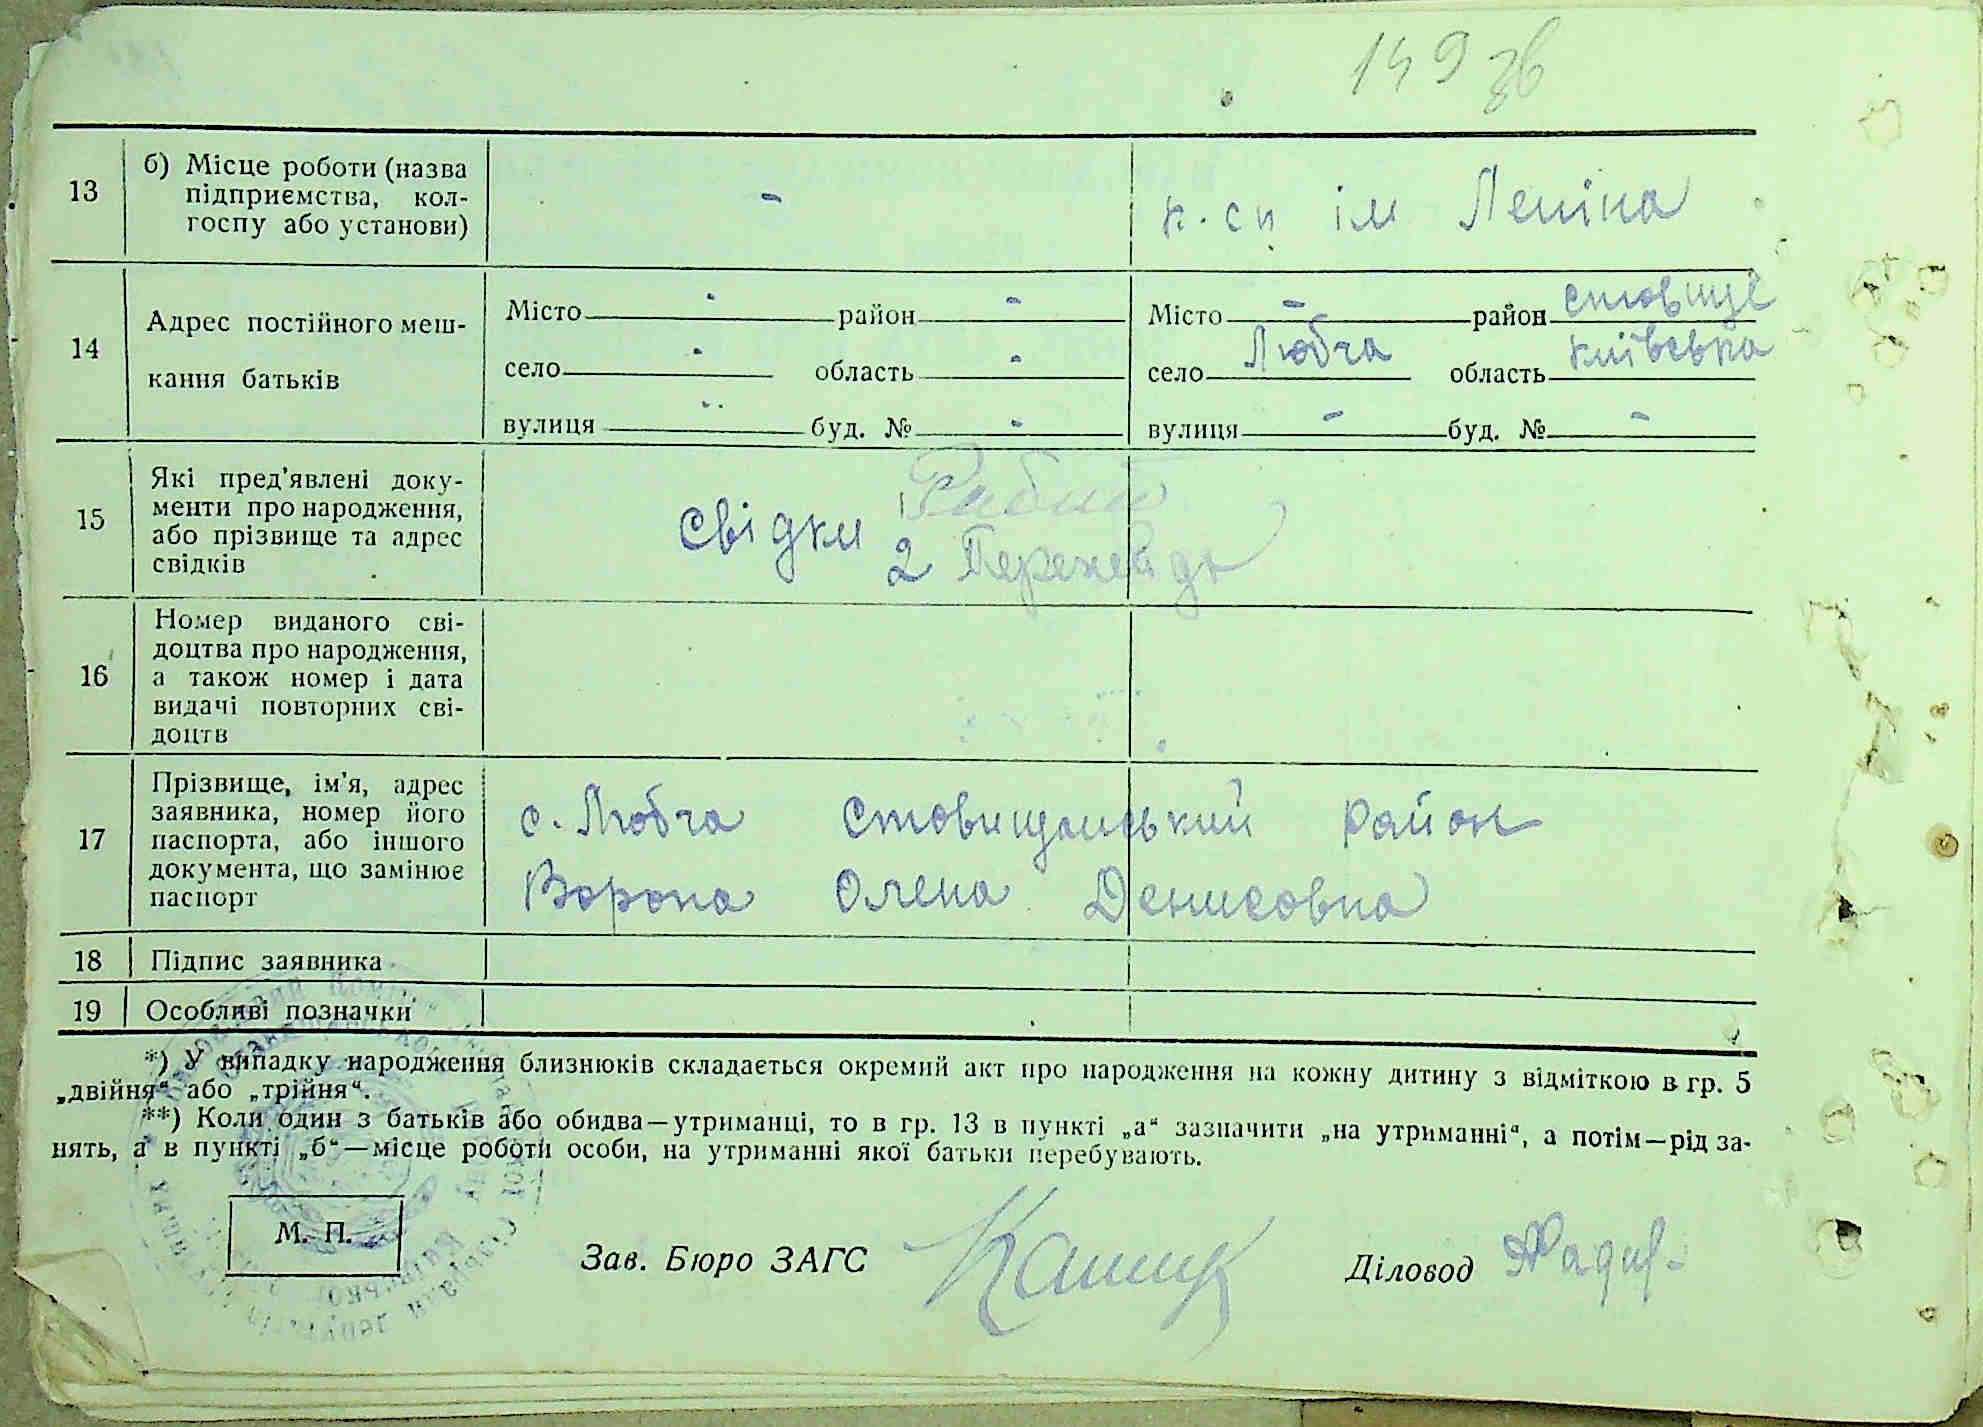 149 зв
13
б) Місце роботи (назва
підприємства, кол-
госпу або установи)
-
к-сп ім Леніна
14
Адрес постійного меш-
кання батьків
Місто - район -
село - область -
вулиця - буд. № -
Місто - район Ставище
село Любча область Київська
вулиця - буд. № -
15
Які пред'явлені доку-
менти про народження,
або прізвище та адрес
свідків
Свідки
2
16
Номер виданого сві-
доцтва про народження,
а також номер і дата
видачі повторних сві-
доцтв
17
Прізвище, ім'я, адрес
заявника, номер його
паспорта, або іншого
документа, що замінює
паспорт
с. Любча Ставищанський район
Ворона Олена Денисовна
18
Підпис заявника
19
Особливі позначки
*) У випадку народження близнюків складається окремий акт про народження на кожну дитину з відміткою в гр. 5
„двійня“ або „трійня“.
**) Коли один з батьків або обидва—утриманці, то в гр. 13 в пункті „а“ зазначити „на утриманні“, а потім—рід за-
нять, а в пункті „б“—місце роботи особи, на утриманні якої батьки перебувають.
М. П.
Зав. Бюро ЗАГС
Діловод